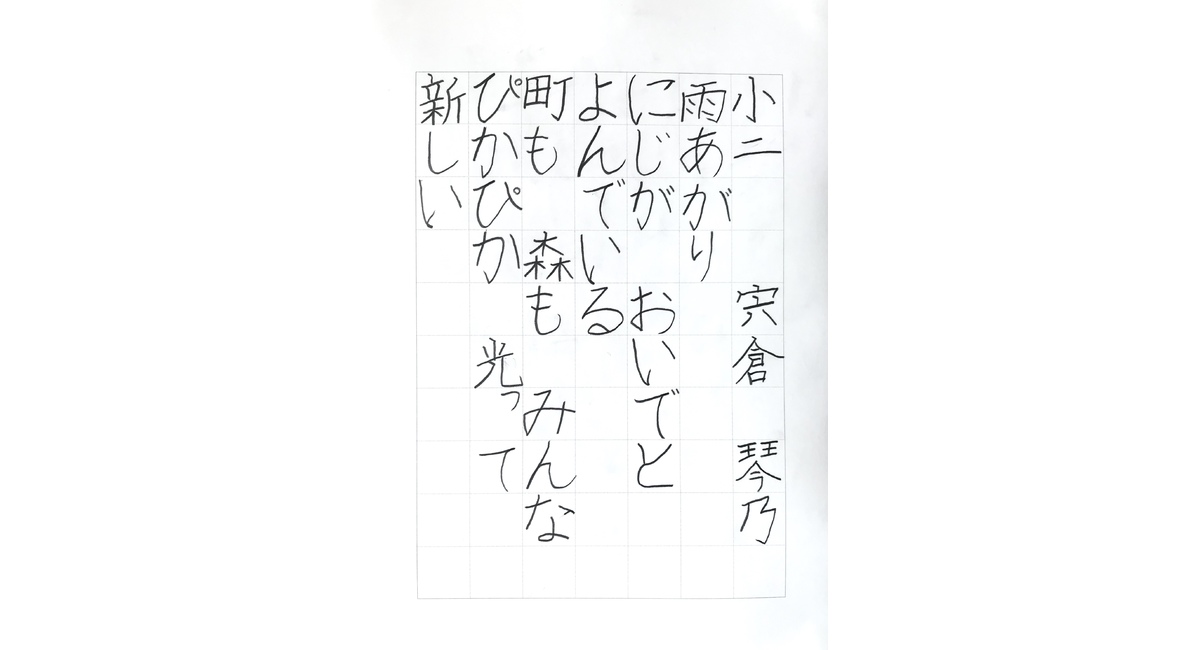 小二 宍倉 琴乃
雨あがり
にじが おいでと
よんでいる
町も 森も みんな
ぴかぴか 光って
新しい